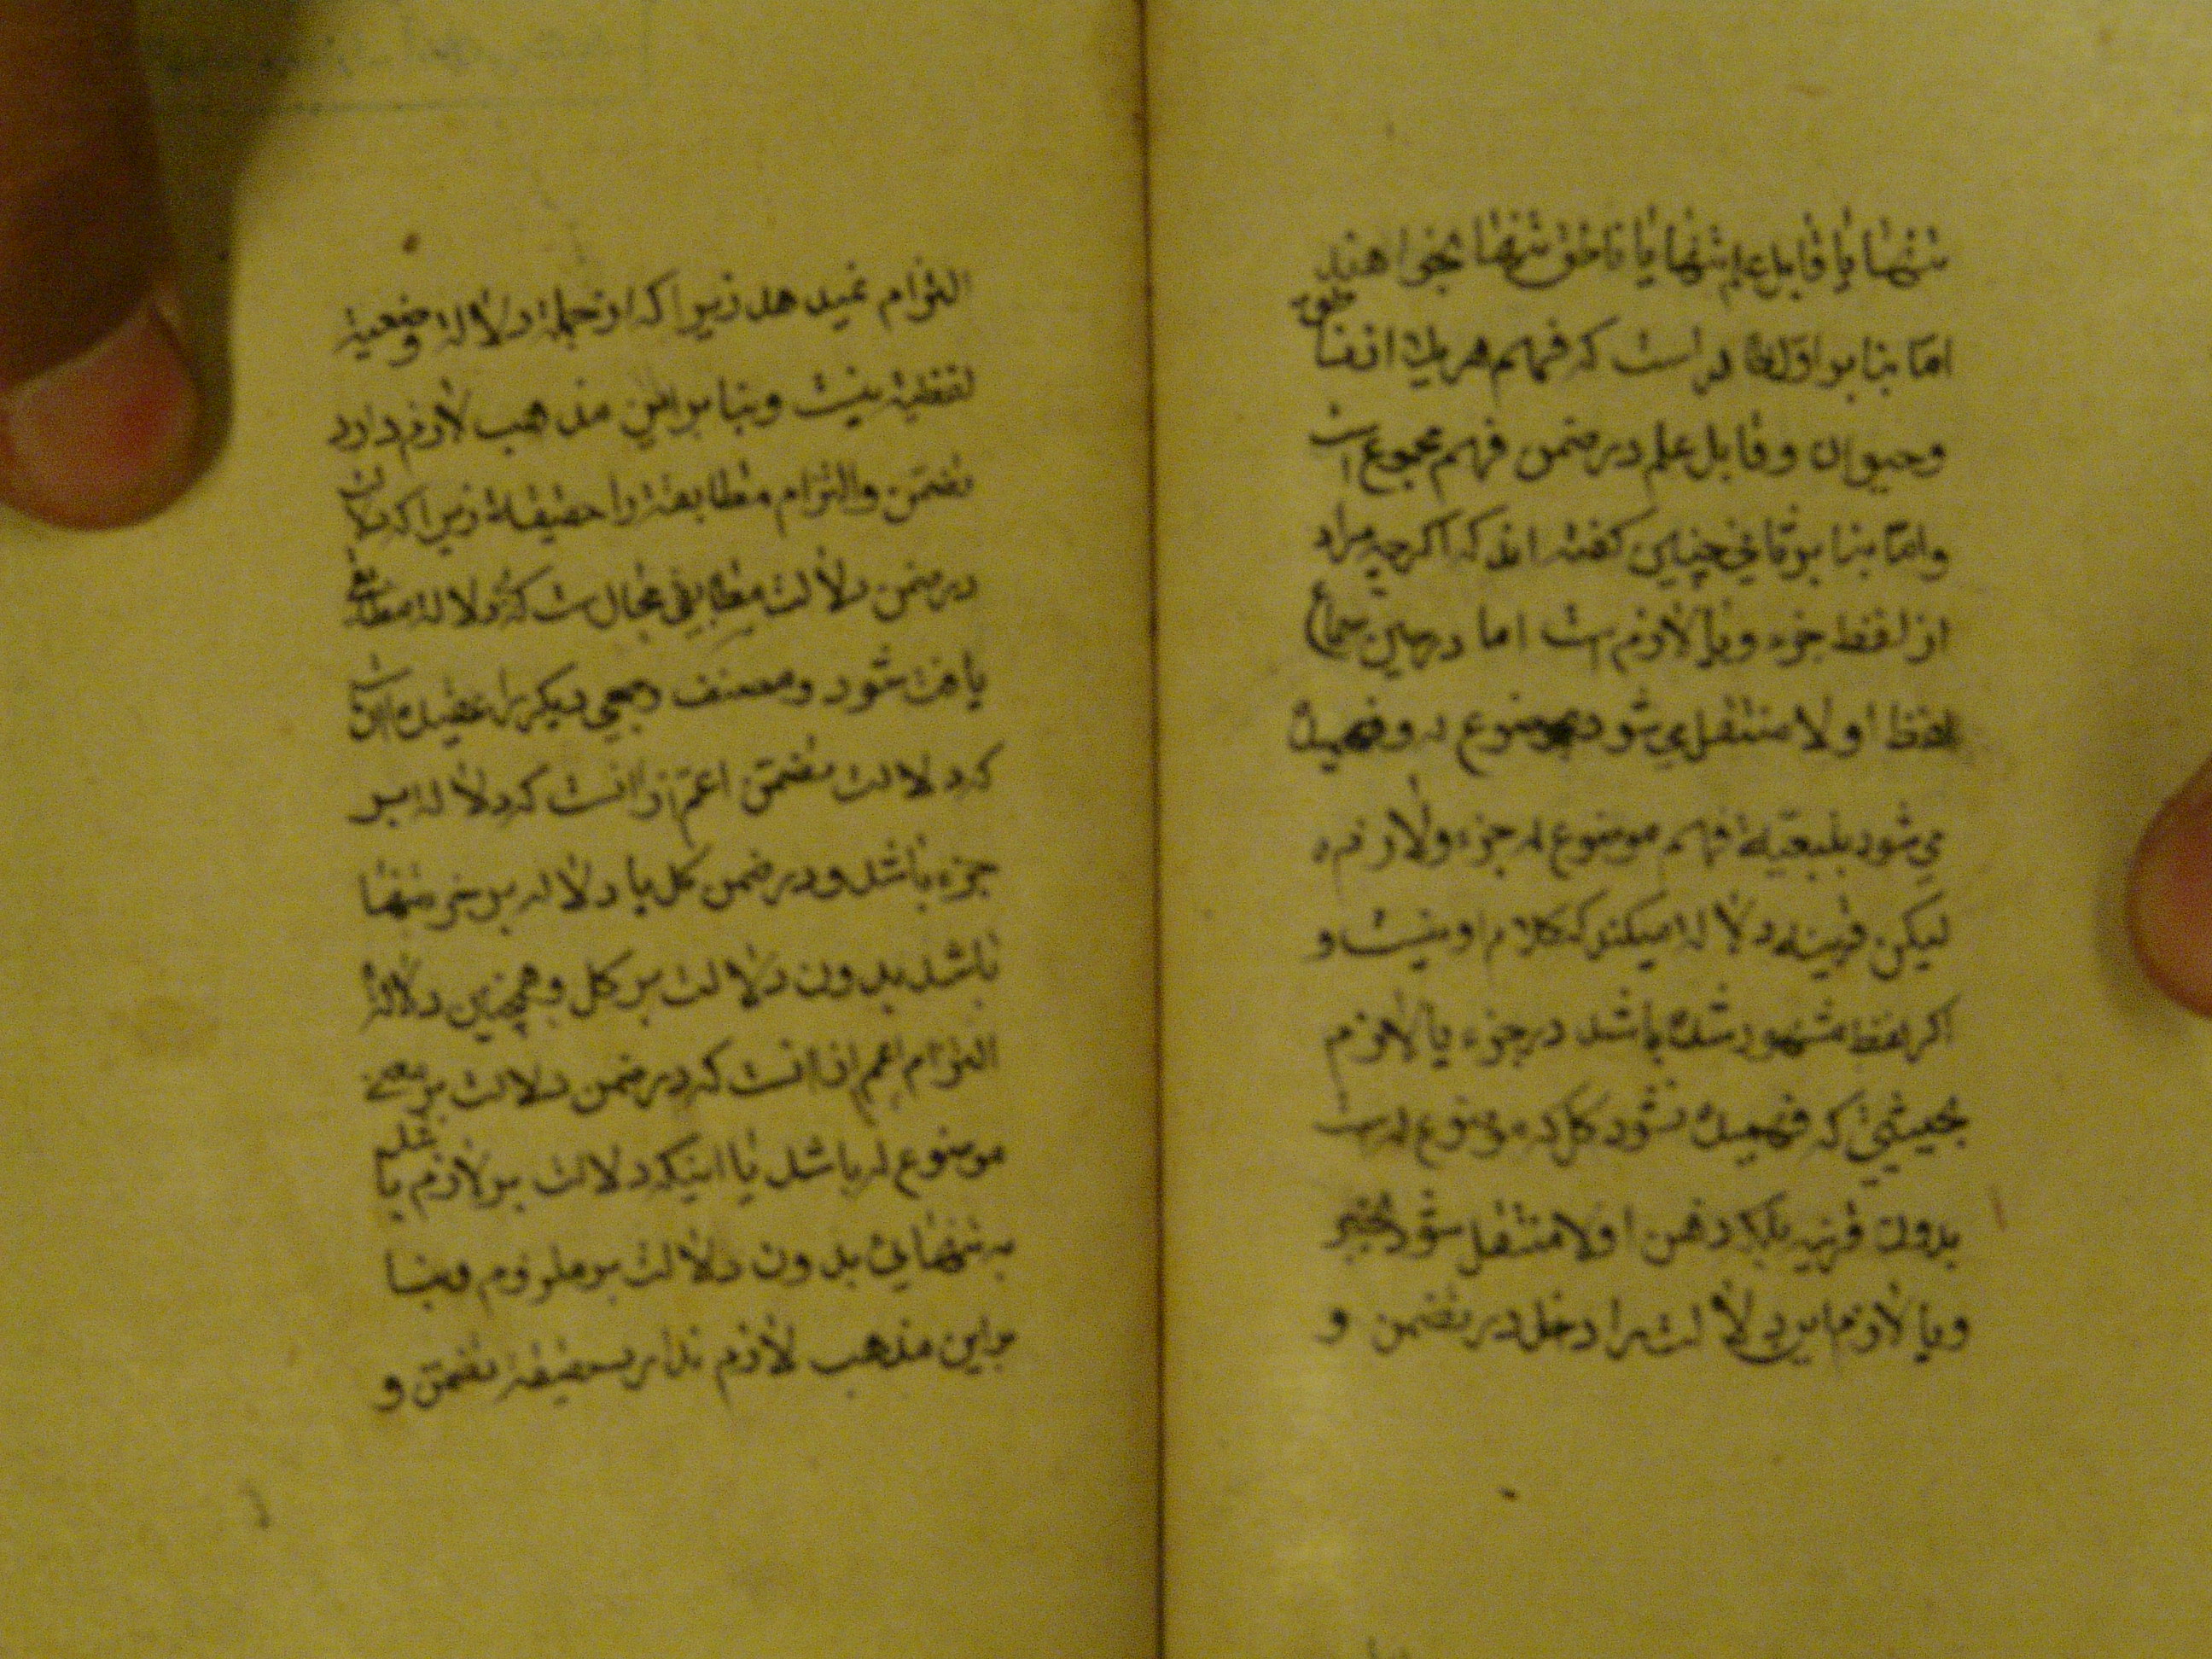 تنها یا قابل علم تنها یا ناطق تنها بخواهند
اما بنا بر اول در است که فهم هریک از ناطق
و حیوان و قابل علم در ضمن فهم مجموع است
و اما بنا بر ثانی چنین کفته اند که اکرچه مراد
از لفظ جزء و یا لازم است اما در حین سماع
لفظ اولا منتقل می شود بموضوع له و فهمیده
می شود بتبعیة فهم موضوع له جزء و لازم
لیکن قرینه دلالة میکند که کلام او نیست و
اکر لفظ مشهور شده باشد در جزء یا لازم
بحیثیتی که فهمیده نشود کل که موضوع له است
بدون قرینه بلکه ذهن اولا منتقل شود بجزء
و یا لازم این دلالت را دخل در تضمن و
التزام نمیدهد زیرا که از جمله دلالة وضعیة
لفظیة نیست و بنا بر این مذهب لازم دارد
تضمن و التزام مطابقة را حقیقة زیرا که دلالت
در ضمن دلالت مطابقی محال است که دلالة مطابقی
یافت شود و مصنف و جمعی دیکر را عقیده این است
که دلالت تضمن اعم از آنست که دلالة بر
جزء باشد و در ضمن کل یا دلالة بر جزء تنها
باشد بدون دلالت بر کل و همچنین دلالة
التزام اعم از آنست که در ضمن دلالت بر معنی
موضوع له باشد یا اینکه دلالت بر لازم باشد
به تنهایی بدون دلالت بر ملزوم و بنا
بر این مذهب لازم ندارد حقیقة تضمن و